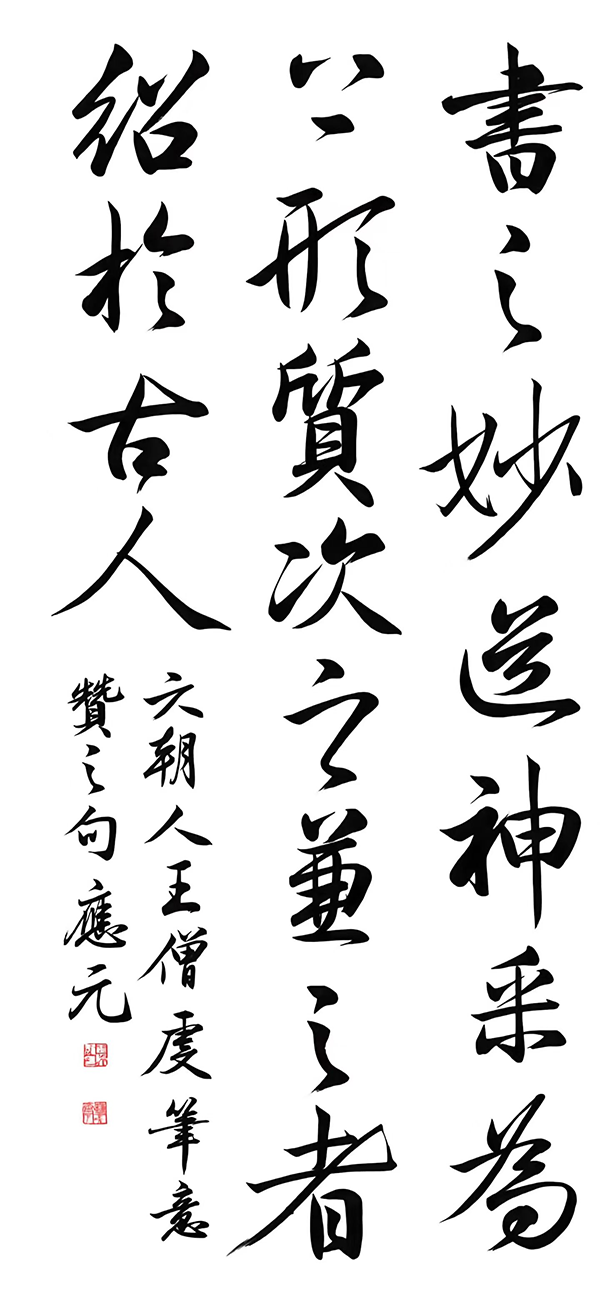 書之妙道神采為
上形質次之兼之者
紹於古人
六朝人王僧虔筆意
贊之句應元